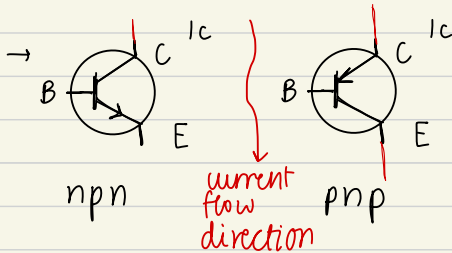 → B C Ic
E
npn
current
flow
direction
B C Ic
E
pnp